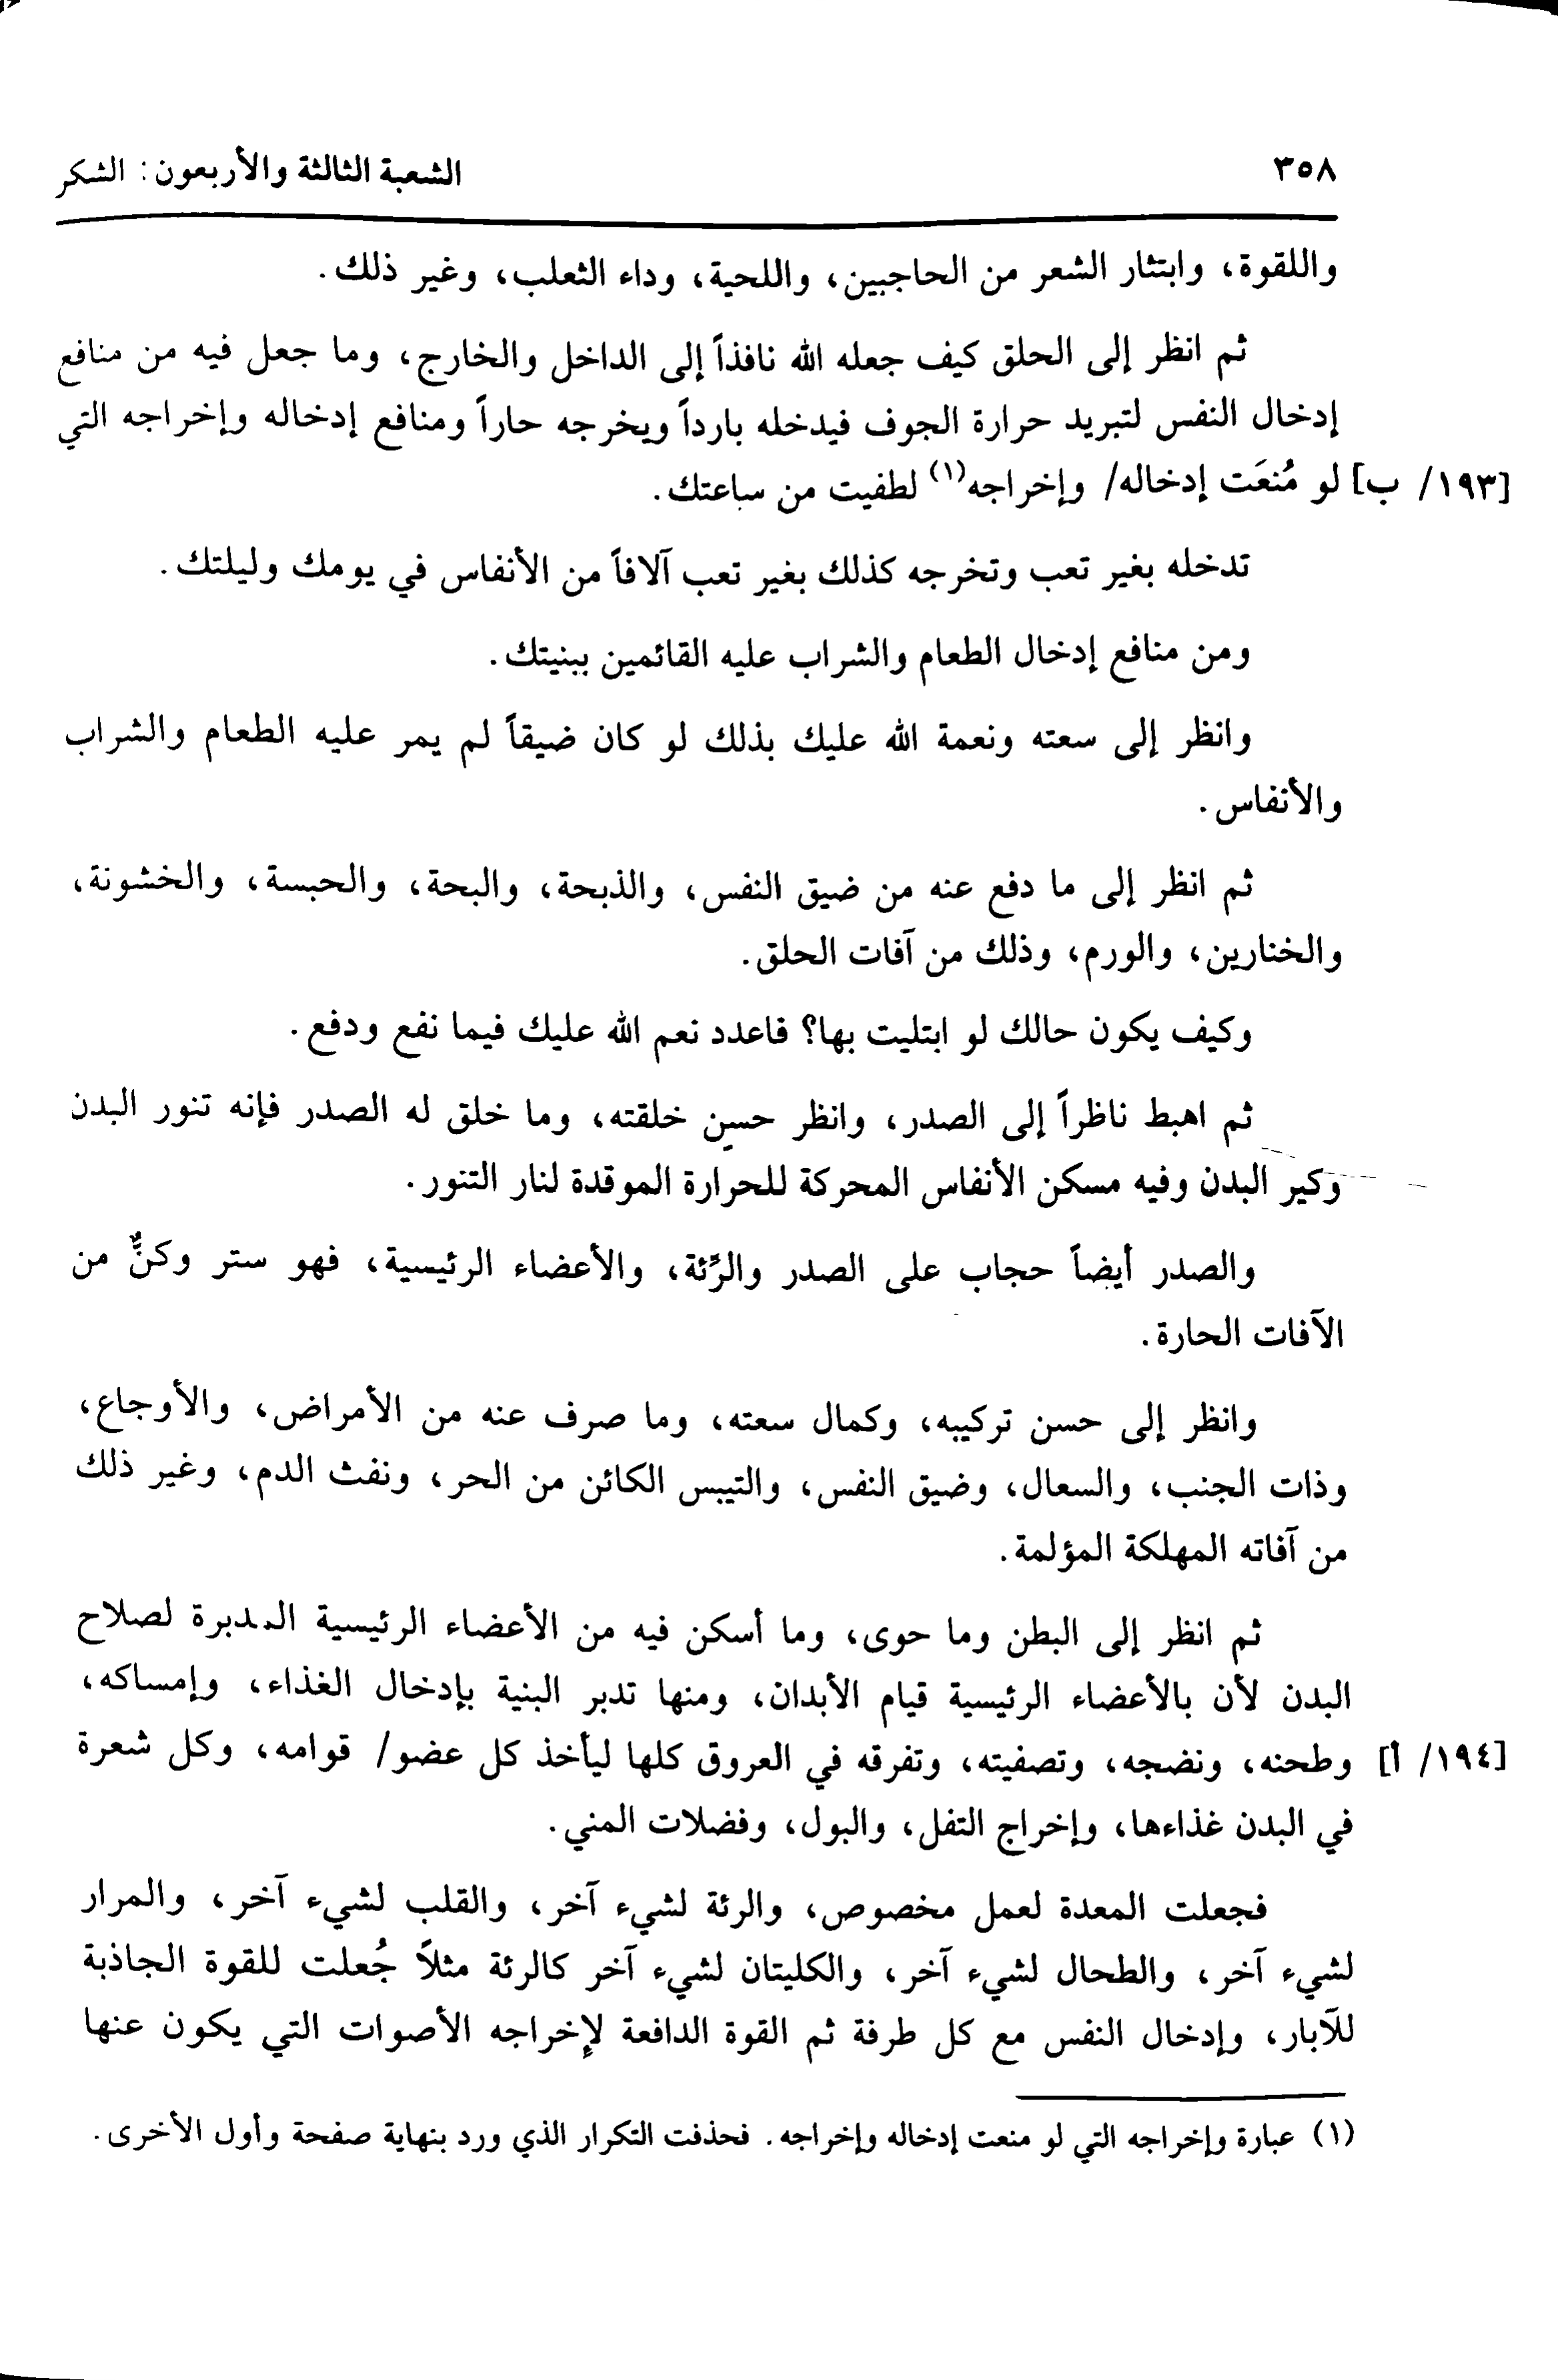 ٣٥٨ الشعبة الثالثة والأربعون: الشكر
واللقوة، وابتثار الشعر من الحاجبين، واللحية، وداء الثعلب، وغير ذلك.
ثم انظر إلى الحلق كيف جعله الله نافذاً إلى الداخل والخارج، وما جعل فيه من منافع
إدخال النفس لتبريد حرارة الجوف فيدخله بارداً ويخرجه حاراً ومنافع إدخاله وإخراجه التي
[١٩٣/ ب] لو مُنعَت إدخاله/ وإخراجه(١) لطفيت من ساعتك.
تدخله بغير تعب وتخرجه كذلك بغير تعب آلافاً من الأنفاس في يومك وليلتك.
ومن منافع إدخال الطعام والشراب عليه القائمين ببنيتك.
وانظر إلى سعته ونعمة الله عليك بذلك لو كان ضيقاً لم يمر عليه الطعام والشراب
والأنفاس.
ثم انظر إلى ما دفع عنه من ضيق النفس، والذبحة، والبحة، والحبسة، والخشونة،
والخنارين، والورم، وذلك من آفات الحلق.
وكيف يكون حالك لو ابتليت بها؟ فاعدد نعم الله عليك فيما نفع ودفع.
ثم اهبط ناظراً إلى الصدر، وانظر حسن خلقته، وما خلق له الصدر فإنه تنور البدن
وكير البدن وفيه مسكن الأنفاس المحركة للحرارة الموقدة لنار التنور.
والصدر أيضاً حجاب على الصدر والرِّئة، والأعضاء الرئيسية، فهو ستر وكنٌّ من
الآفات الحارة.
وانظر إلى حسن تركيبه، وكمال سعته، وما صرف عنه من الأمراض، والأوجاع،
وذات الجنب، والسعال، وضيق النفس، والتيبس الكائن من الحر، ونفث الدم، وغير ذلك
من آفاته المهلكة المؤلمة.
ثم انظر إلى البطن وما حوى، وما أسكن فيه من الأعضاء الرئيسية المدبرة لصلاح
البدن لأن بالأعضاء الرئيسية قيام الأبدان، ومنها تدبر البنية بإدخال الغذاء، وإمساكه،
[١٩٤/ أ] وطحنه، ونضجه، وتصفيته، وتفرقه في العروق كلها ليأخذ كل عضو/ قوامه، وكل شعرة
في البدن غذاءها، وإخراج التفل، والبول، وفضلات المني.
فجعلت المعدة لعمل مخصوص، والرئة لشيء آخر، والقلب لشيء آخر، والمرار
لشيء آخر، والطحال لشيء آخر، والكليتان لشيء آخر كالرئة مثلاً جُعلت للقوة الجاذبة
للآبار، وإدخال النفس مع كل طرفة ثم القوة الدافعة لإخراجه الأصوات التي يكون عنها
(١) عبارة وإخراجه التي لو منعت إدخاله وإخراجه. فحذفت التكرار الذي ورد بنهاية صفحة وأول الأخرى.